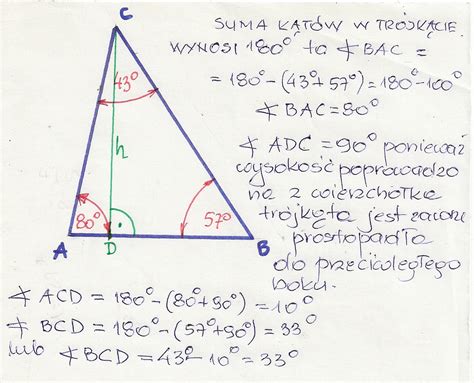 C
SUMA KĄTÓW W TRÓJKĄCIE
WYNOSI 180° to ∢ BAC =
= 180° - (43° + 57°) = 180° - 100°
∢ BAC = 80°
43°
h
∢ ADC = 90° ponieważ
wysokość poprowadzo
na z wierzchołka
trójkąta jest zawsze
prostopadła
do przeciwległego
boku.
80°
57°
A
D
B
∢ ACD = 180° - (80° + 90°) = 10°
∢ BCD = 180° - (57° + 90°) = 33°
lub ∢ BCD = 43° - 10° = 33°